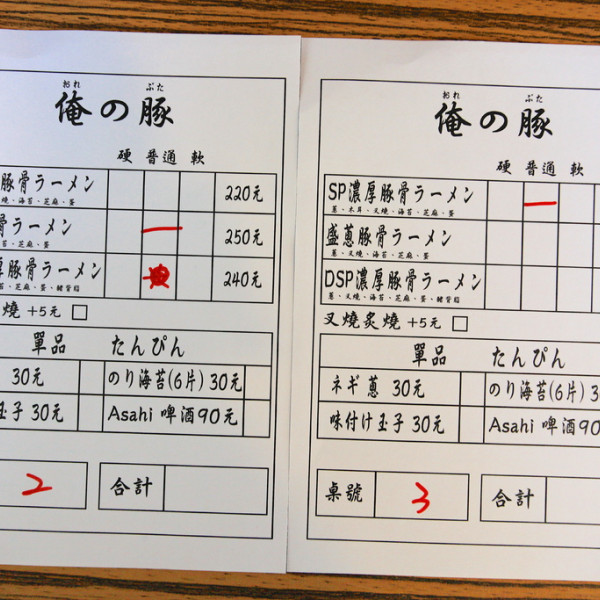 おれ ぶた
俺の豚
硬 普通 軟
豚骨ラーメン 220元
燒、海苔、芝麻、蛋
骨ラーメン 250元
海苔、芝麻、蛋
豚骨ラーメン 240元
苔、芝麻、蛋、豬背脂
燒 +5元
單品 たんぴん
30元 のり海苔(6片) 30元
玉子 30元 Asahi 啤酒90元
2 合計
おれ ぶた
俺の豚
硬 普通 軟
SP濃厚豚骨ラーメン
蔥、木耳、叉燒、海苔、芝麻、蛋
盛蔥豚骨ラーメン
蔥、叉燒、海苔、芝麻、蛋
DSP濃厚豚骨ラーメン
蔥、叉燒、海苔、芝麻、蛋、豬背脂
叉燒炙燒 +5元
單品 たんぴん
ネギ蔥 30元 のり海苔(6片) 3
味付け玉子 30元 Asahi 啤酒90
桌號 3 合計